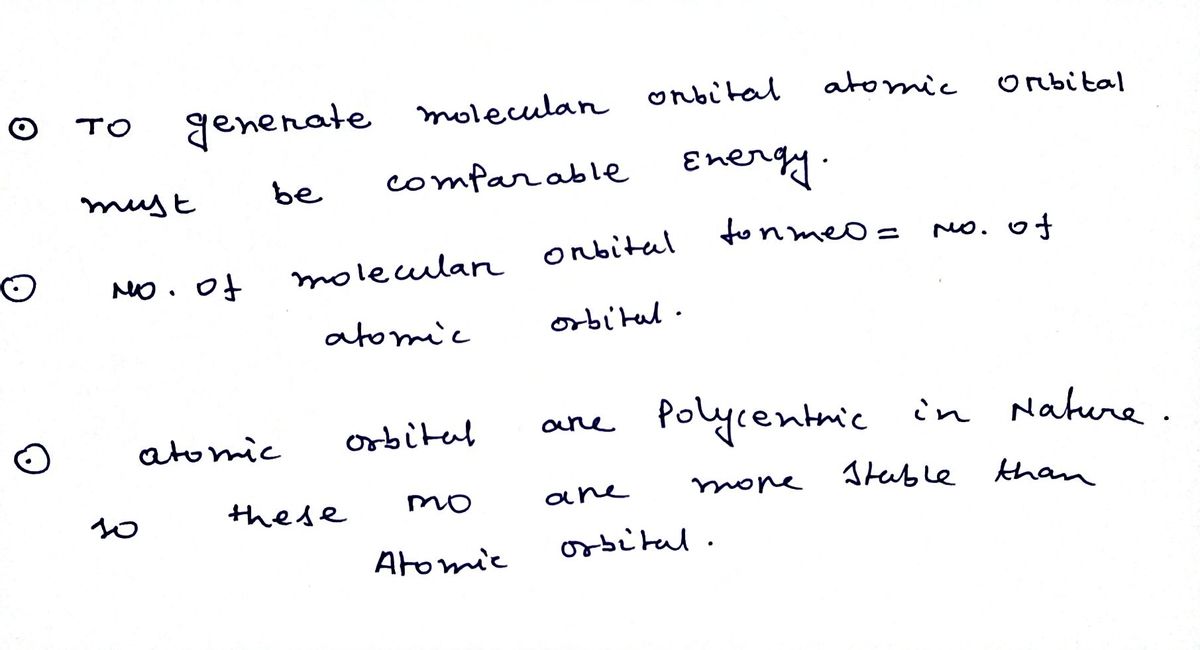 ⊙ TO generate molecular orbital atomic orbital
must be comparable Energy.
⊙ NO. Of molecular orbital formed = NO. of
atomic orbital.
⊙ atomic orbital are Polycentric in Nature.
so these MO are more stable than
Atomic orbital.